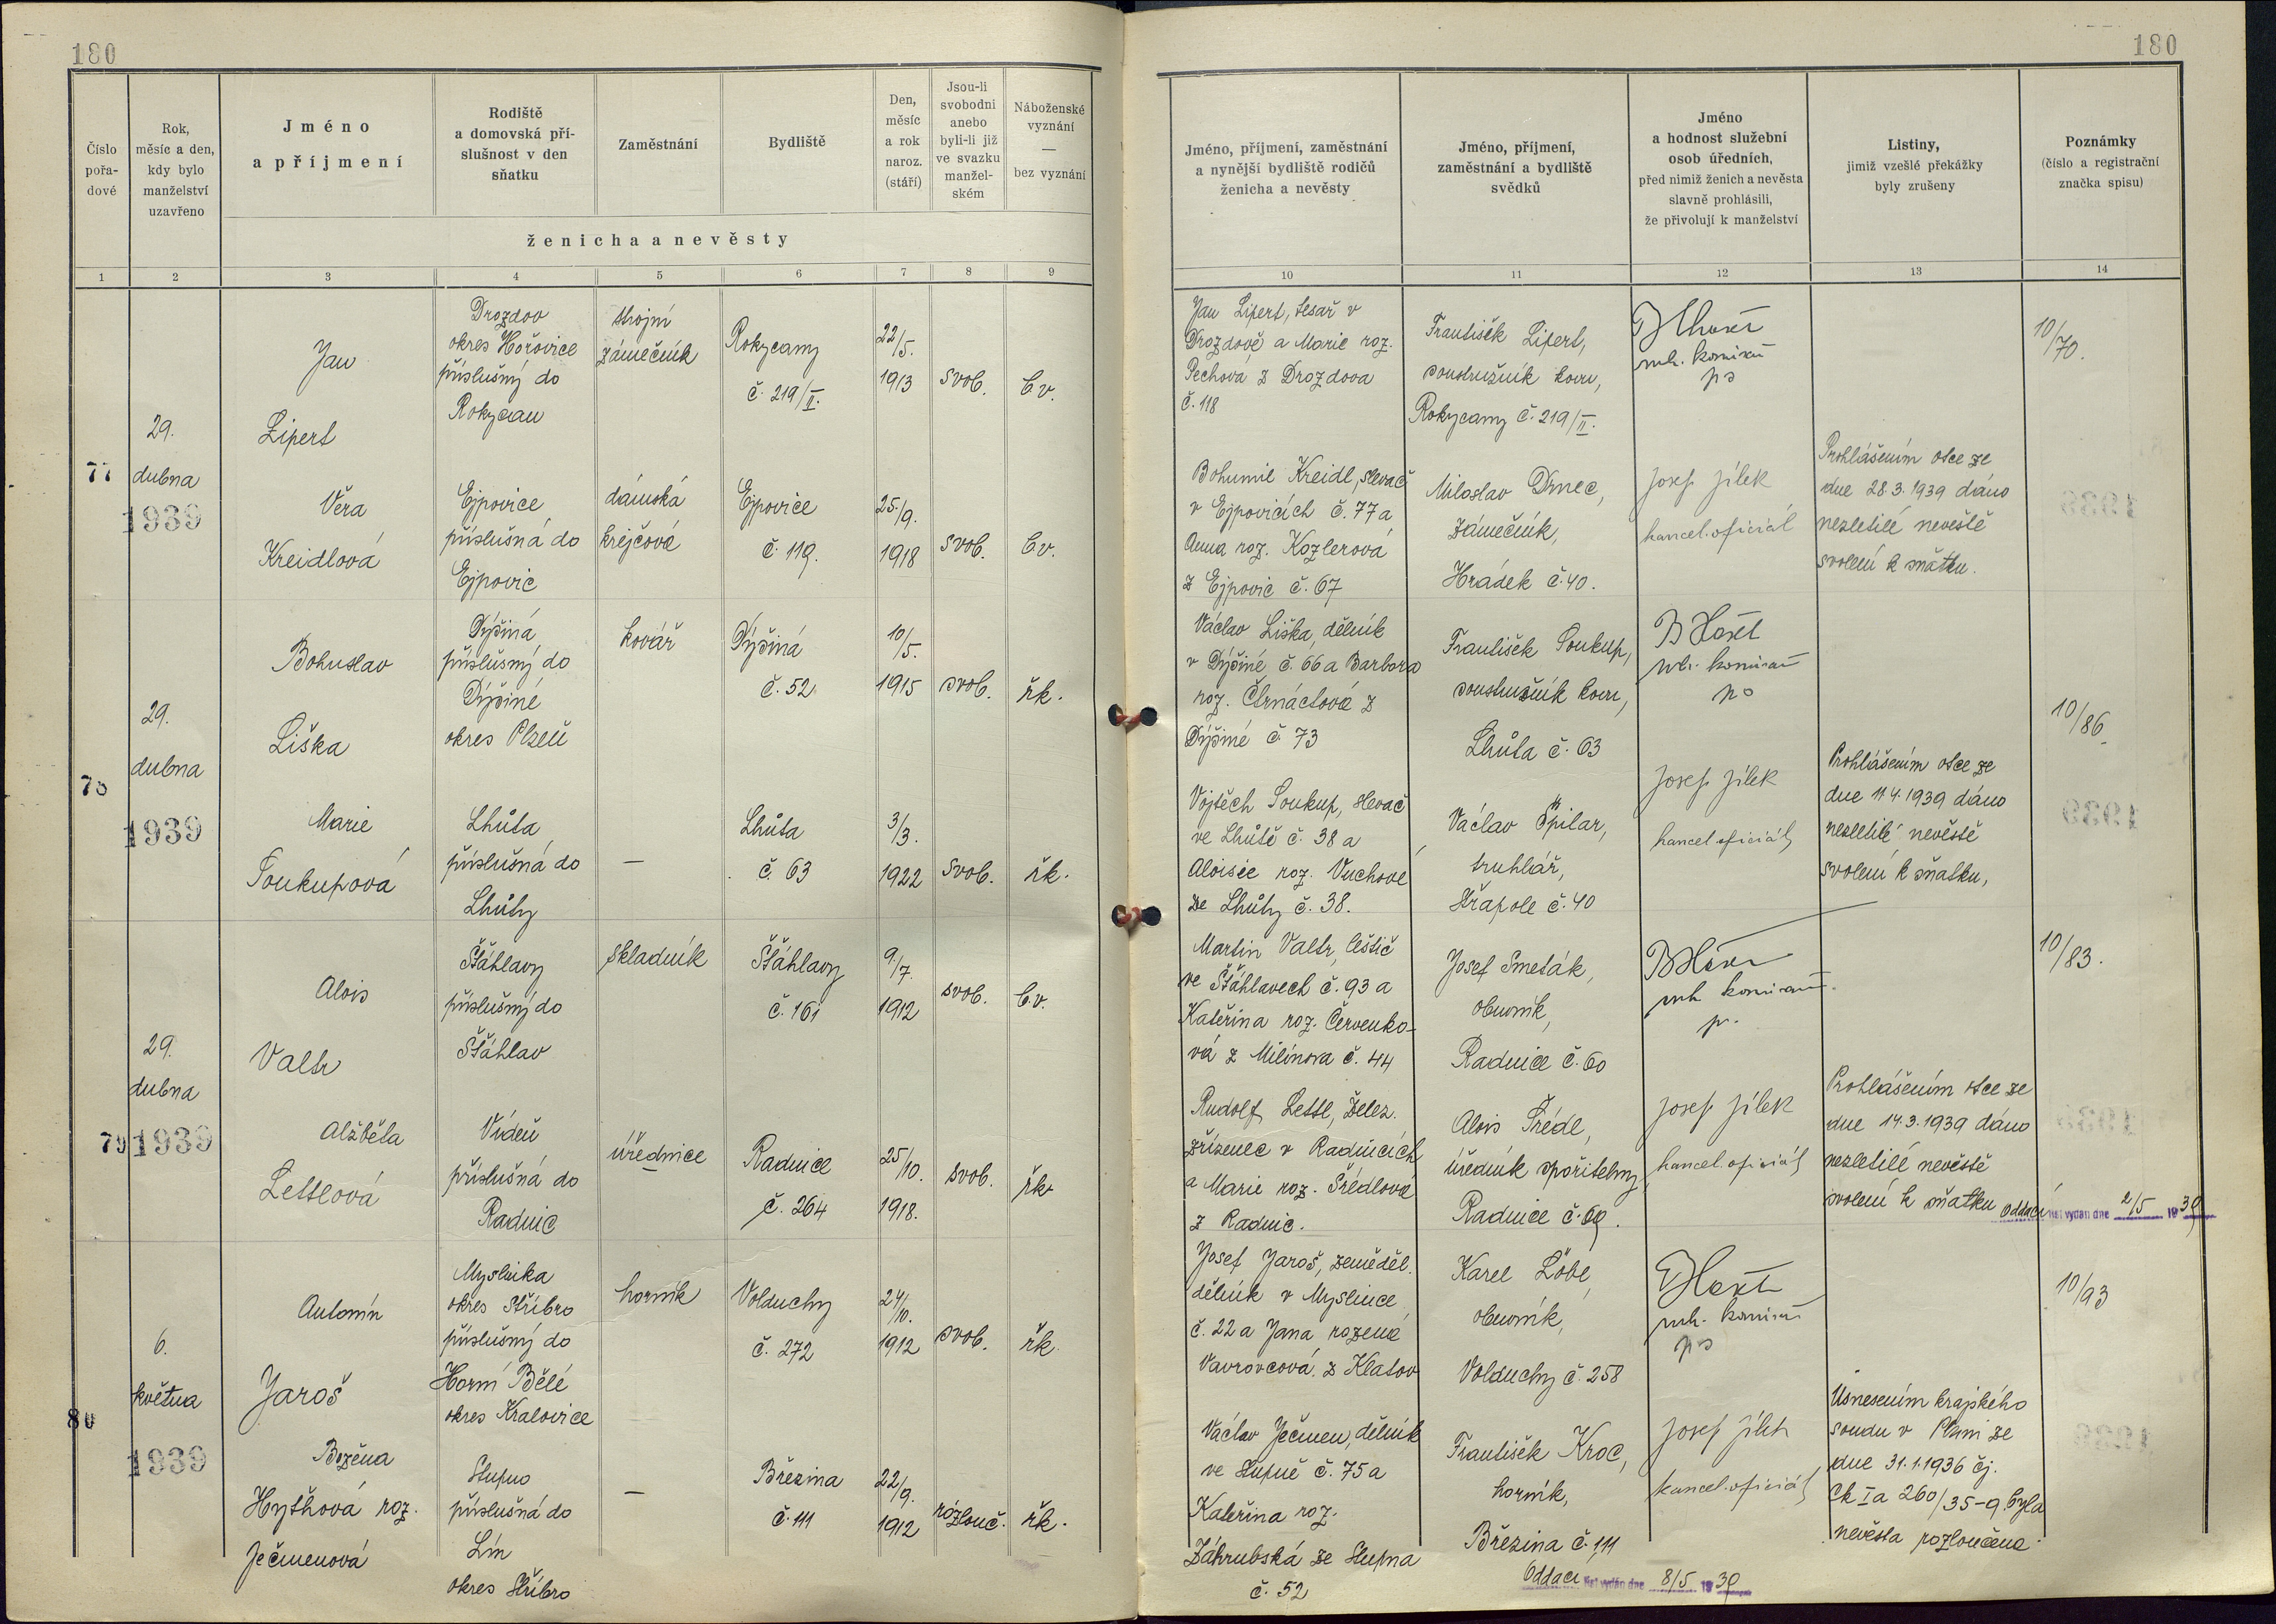 180
180
Číslo
pořa-
dové
Rok,
měsíc a den,
kdy bylo
manželství
uzavřeno
Jméno
a příjmení
Rodiště
a domovská pří-
slušnost v den
sňatku
Zaměstnání
Bydliště
Den,
měsíc
a rok
naroz.
(stáří)
Jsou-li
svobodní
anebo
byli-li již
ve svazku
manžel-
ském
Náboženské
vyznání
—
bez vyznání
ženicha a nevěsty
Jméno, příjmení, zaměstnání
a nynější bydliště rodičů
ženicha a nevěsty
Jméno, příjmení,
zaměstnání a bydliště
svědků
Jméno
a hodnost služební
osob úředních,
před nimiž ženich a nevěsta
slavně prohlásili,
že přivolují k manželství
Listiny,
jimiž vzešlé překážky
byly zrušeny
Poznámky
(číslo a registrační
značka spisu)
1 2 3 4 5 6 7 8 9 10 11 12 13 14
77
29.
dubna
1939
Jan
Lipert
Drozdov
okres Hořovice
příslušný do
Rokycan
strojní
zámečník
Rokycany
č. 219/II.
22/5.
1913
svob.
bv.
Jan Lipert, tesař v
Drozdově a Marie roz.
Pechová z Drozdova
č. 118
František Lipert,
soustružník kovu,
Rokycany č. 219/II.
10/70.
Věra
Kreidlová
Ejpovice
příslušná do
Ejpovic
dámská
krejčová
Ejpovice
č. 119.
25/9.
1918
svob.
bv.
Bohumil Kreidl, slevač
v Ejpovicích č. 77 a
Anna roz. Kozlerová
z Ejpovic č. 67
Miloslav Drnec,
zámečník,
Hrádek č. 40.
Josef Jílek
kancel. oficiál
Prohlášením otce ze
dne 28.3.1939 dáno
nezletilé nevěstě
svolení k sňatku.
78
29.
dubna
1939
Bohuslav
Liška
Dýšiná
příslušný do
Dýšiné
okres Plzeň
kovář
Dýšiná
č. 52
10/5.
1915
svob.
řk.
Václav Liška, dělník
v Dýšiné č. 66 a Barbora
roz. Čtrnáctová z
Dýšiné č. 73
František Soukup,
soustružník kovu,
Lhůta č. 63
10/86
Marie
Soukupová
Lhůta
příslušná do
Lhůty
—
Lhůta
č. 63
3/3.
1922
svob.
řk.
Vojtěch Soukup, slevač
ve Lhůtě č. 38 a
Aloisie roz. Vuchové
ze Lhůty č. 38.
Václav Špilar,
truhlář,
č. 40
Josef Jílek
kancel. oficiál
Prohlášením otce ze
dne 11.4.1939 dáno
nezletilé nevěstě
svolení k sňatku,
79
29.
dubna
1939
Alois
Valtr
Šťáhlavy
příslušný do
Šťáhlav
skladník
Šťáhlavy
č. 161
9/7.
1912
svob.
bv.
Martin Valtr, leštič
ve Šťáhlavech č. 93 a
Kateřina roz. Červenko-
vá z Milínova č. 44
Josef Smeták,
obuvník,
Radnice č. 60
10/83.
Alžběta
Lettlová
Vídeň
příslušná do
Radnic
úřednice
Radnice
č. 264
25/10.
1918.
svob.
řk.
Rudolf Lettl, želez.
zřízenec v Radnicích
a Marie roz. Šrédlová
z Radnic.
Alois Šrédl,
úředník spořitelny
Radnice č. 69.
Josef Jílek
kancel. oficiál
Prohlášením otce ze
dne 14.3.1939 dáno
nezletilé nevěstě
svolení k sňatku
Oddací list vydán dne 2/5 1939
80
6.
května
1939
Antonín
Jaroš
Myslinka
okres Stříbro
příslušný do
Horní Bělé
okres Kralovice
horník
Volduchy
č. 272
24/10.
1912
svob.
řk.
Josef Jaroš, zeměděl.
dělník v Myslince
č. 22 a Jana rozená
Vavrovcová z Klatov
Karel Löbl
obuvník,
Volduchy č. 258
10/93
Božena
Hyťhová roz.
Ječmenová
Stupno
příslušná do
Lín
okres Stříbro
—
Březina
č. 111
22/9.
1912
rozlouč.
řk.
Václav Ječmen, dělník
ve Stupně č. 75 a
Kateřina roz.
Záhrubská ze Stupna
č. 52
František Kroc,
horník,
Březina č. 111
Josef Jílek
kancel. oficiál
Usnesením krajského
soudu v Plzni ze
dne 31.1.1936 čj.
Ck Ia 260/35-9 byla
nevěsta rozloučena.
Oddací list vydán dne 8/5 1939